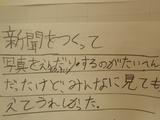 新聞をつくって
写真をえらんだり、するのがたいへん
だったけど、みんなに見ても
らえてうれしかった。